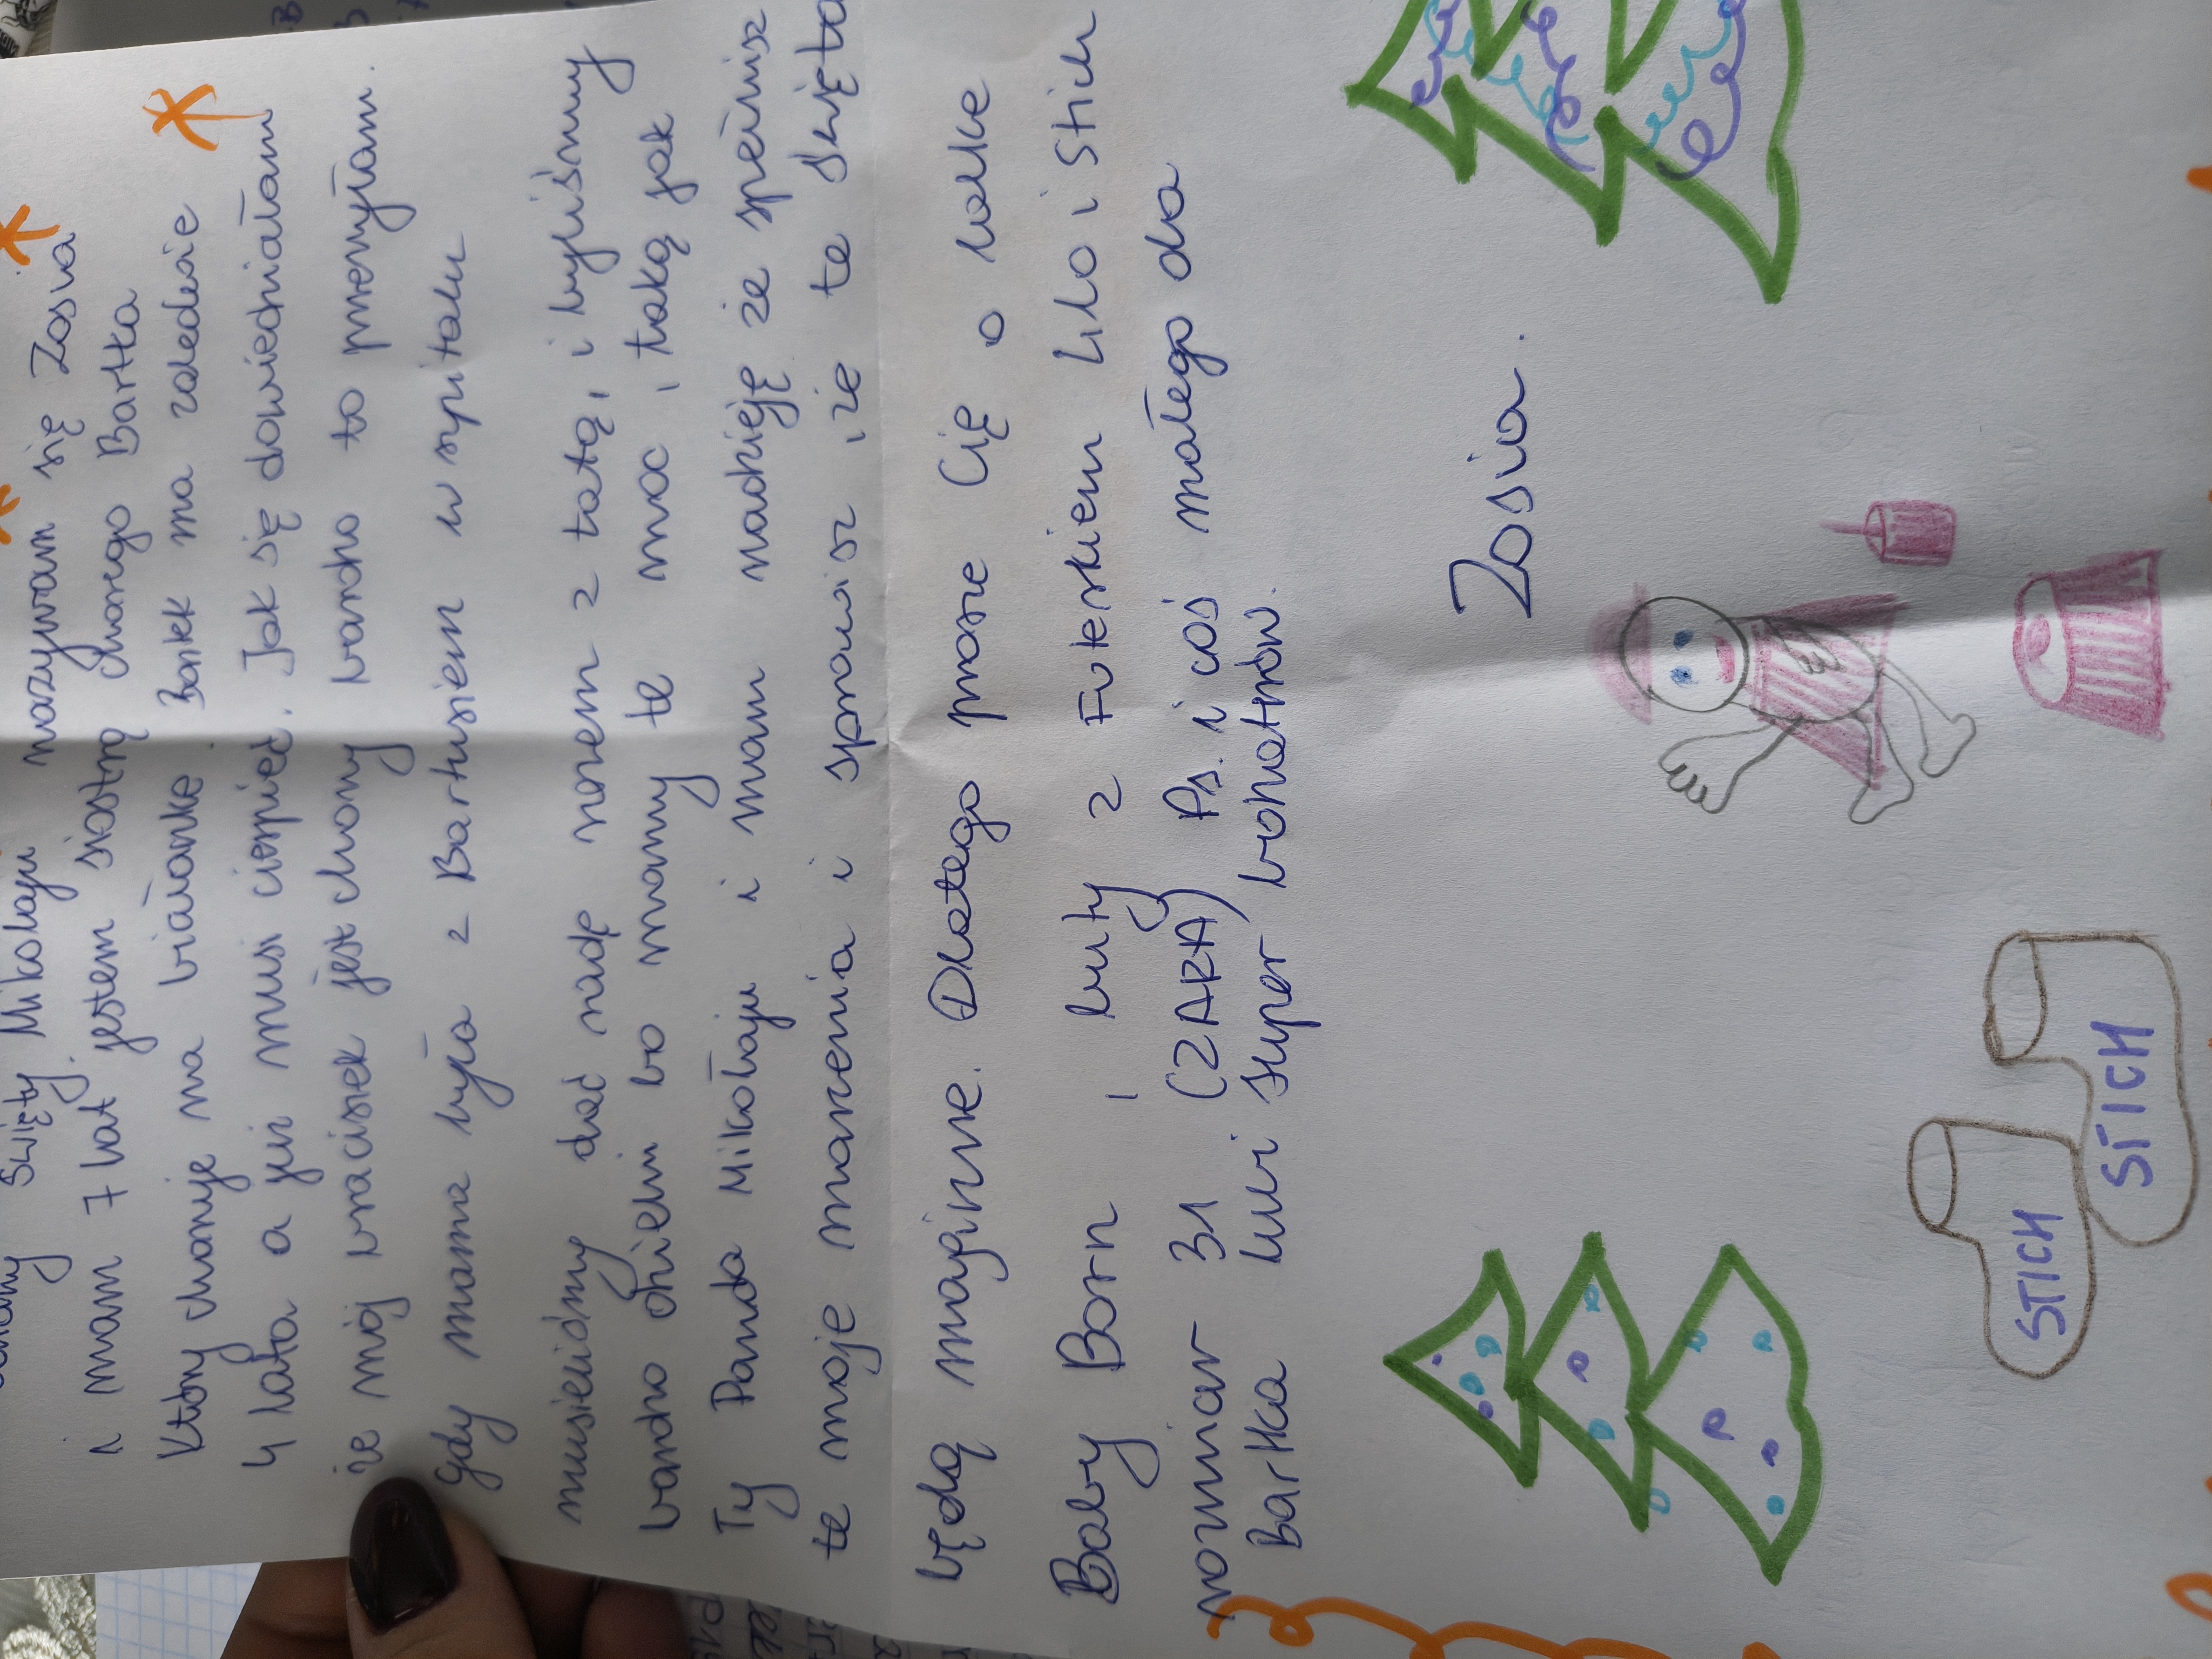 Święty Mikołaju nazywam się Zosia
i mam 7 lat jestem siostrą chorego Bartka
który choruje na białaczke. Bartek ma zaledwie
4 lata a już musi cierpieć. Jak się dowiedziałam
że mój braciszek jest chory bardzo to przeżyłam.
gdy mama była z Bartusiem w szpitalu
musieliśmy dać radę razem z tatą, i byliśmy
bardzo dzielni bo mamy te moc, taką jak
Ty Panda Mikołaju i mam nadzieję że spełnisz
te moje marzenia i sprawisz, że te święta
będą magiczne. Dlatego prosze Cię o lalke
Baby Born, buty z Futerkiem Lilo i Stich
rozmiar 31 (ZARA) Ps. i coś małego dla
Bartka lubi super bohaterów.
Zosia.
STICH
STICH